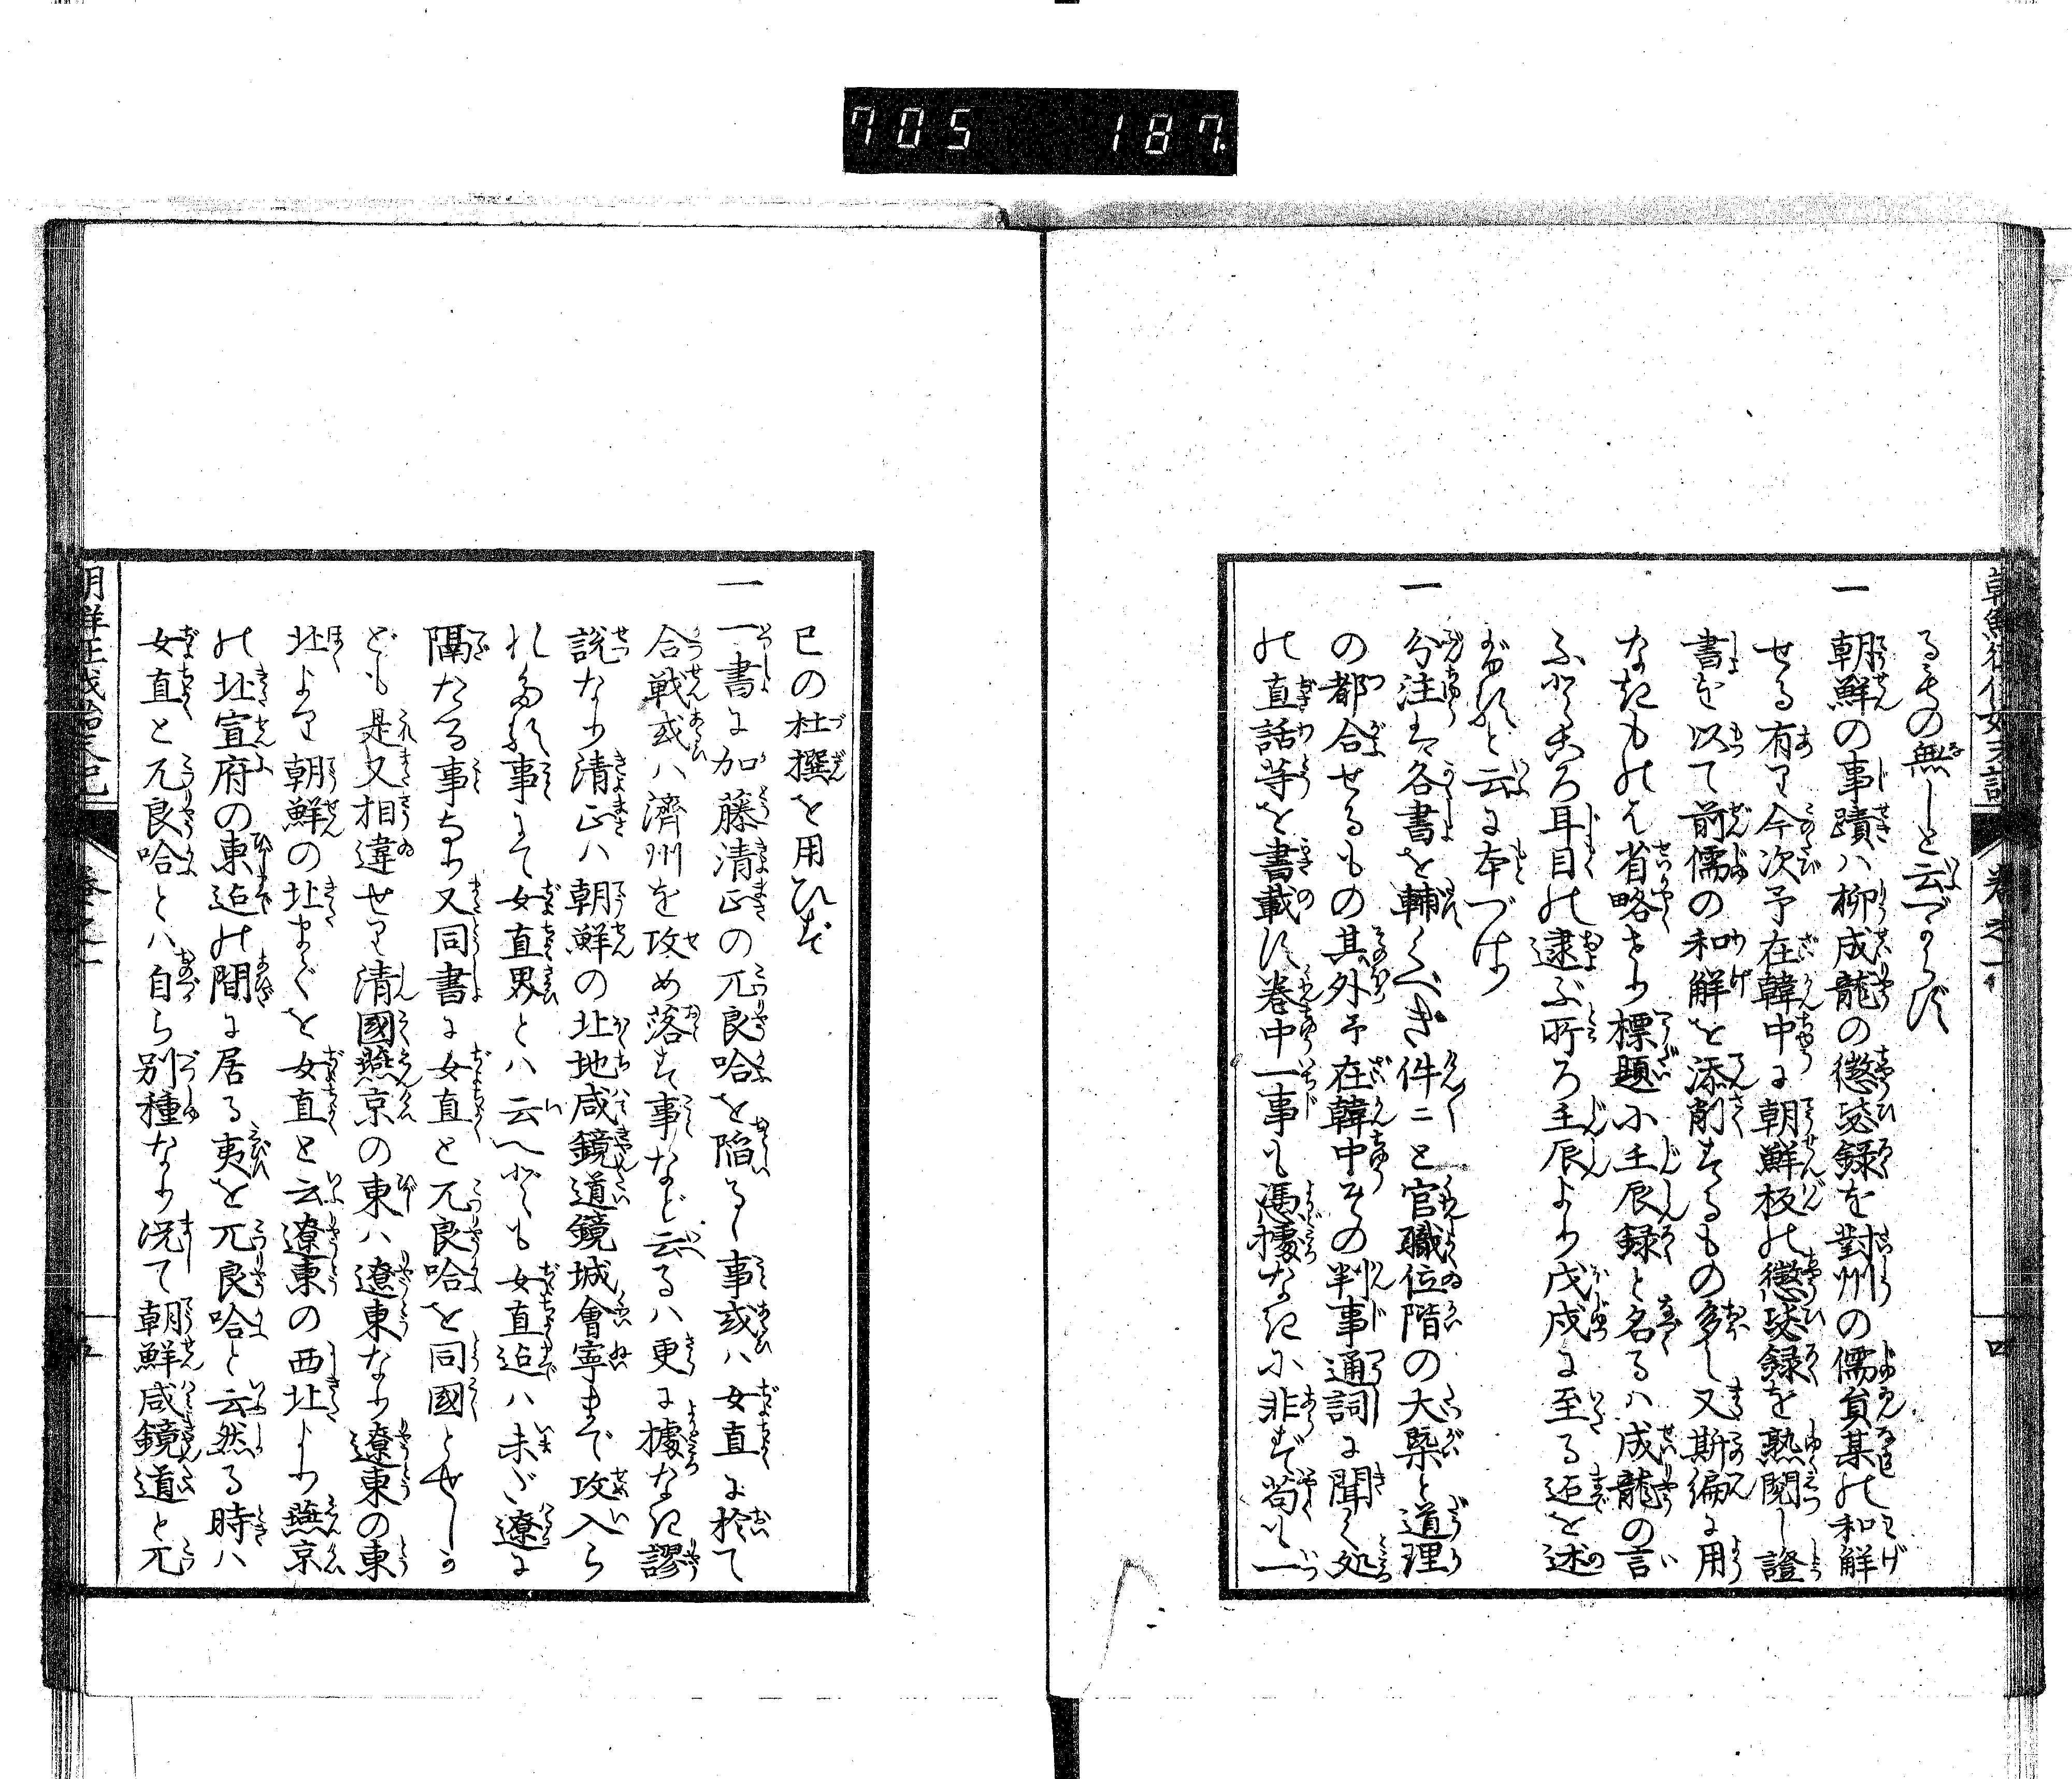 705 187
るもの無しと云べからず
一 朝鮮の事蹟ハ柳成龍の懲毖録を對州の儒員某の和解
せる有り今次予在韓中に朝鮮板の懲毖録を熟閲し證
書を以て前儒の和解を添削するもの多し又斯編に用
なきものは省略せり標題に壬辰録と名るハ成龍の言
ふところ耳目の逮ぶ所ろ壬辰より戊戌に至る迄を述
がゆゑと云に本づけり
一 分注は各書を輔くべき件ニと官職位階の大槩と道理
の都合せるもの其外予在韓中その判事通詞に聞く処
の直話等を書載す巻中一事も憑據なきに非ず苟も一
巳の杜撰を用ひず
一 一書に加藤清正の兀良哈を陥る事或ハ女直に於て
合戦或ハ濟州を攻め落す事など云るハ更に據なき謬
説なり清正ハ朝鮮の北地咸鏡道鏡城會寧まで攻入ら
れたる事にて女直界とハ云へども女直迄ハ未だ遼に
隔たる事なり又同書に女直と兀良哈を同國とせしか
ども是又相違せり清國燕京の東ハ遼東なり遼東の東
北より朝鮮の北まぐを女直と云遼東の西北より燕京
の北宣府の東迄の間に居る夷を兀良哈と云然る時ハ
女直と兀良哈とハ自ら別種なり况て朝鮮咸鏡道と兀